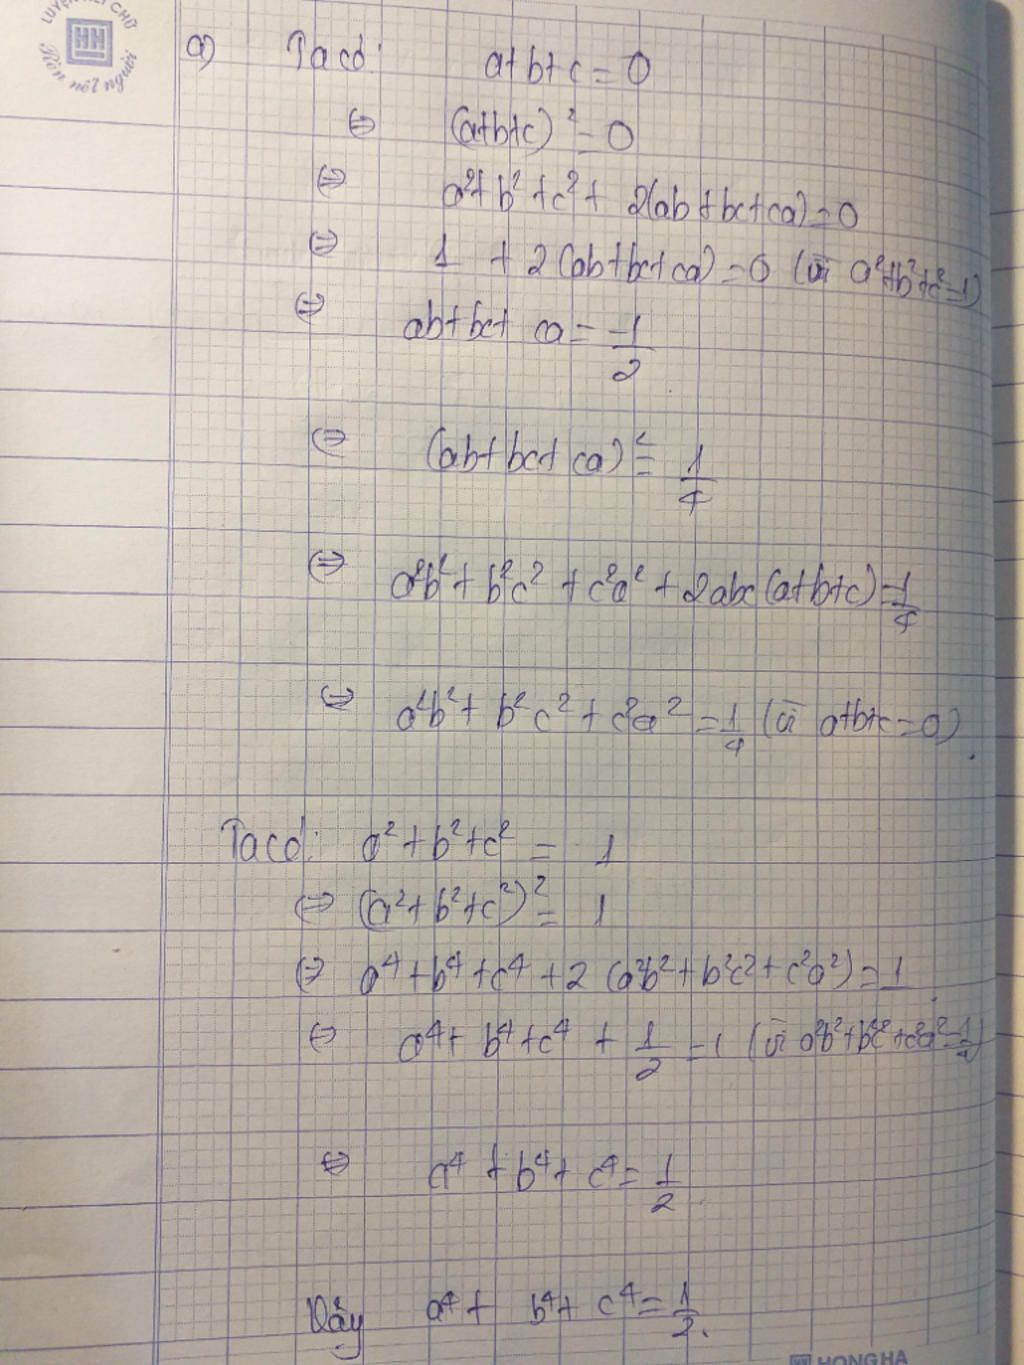 LUYỆN NÉT CHỮ
HH
Rèn nết người
a) Ta có: a+b+c = 0
⇔ (a+b+c)² = 0
⇔ a²+b²+c²+ 2(ab+bc+ca) = 0
⇔ 1 + 2(ab+bc+ca) = 0 (vì a²+b²+c²=1)
⇔ ab+bc+ ca = -1/2
⇔ (ab+bc+ca)² = 1/4
⇔ a²b²+b²c²+c²a²+2abc(a+b+c) = 1/4
⇔ a²b²+b²c²+c²a² = 1/4 (vì a+b+c=0)
Ta có: a²+b²+c² = 1
⇔ (a²+b²+c²)² = 1
⇔ a⁴+b⁴+c⁴+2(a²b²+b²c²+c²a²) = 1
⇔ a⁴+b⁴+c⁴ + 1/2 = 1 (vì a²b²+b²c²+c²a²=1/4)
⇔ a⁴+b⁴+c⁴ = 1/2
Vậy a⁴+ b⁴+ c⁴ = 1/2.
HONG HA